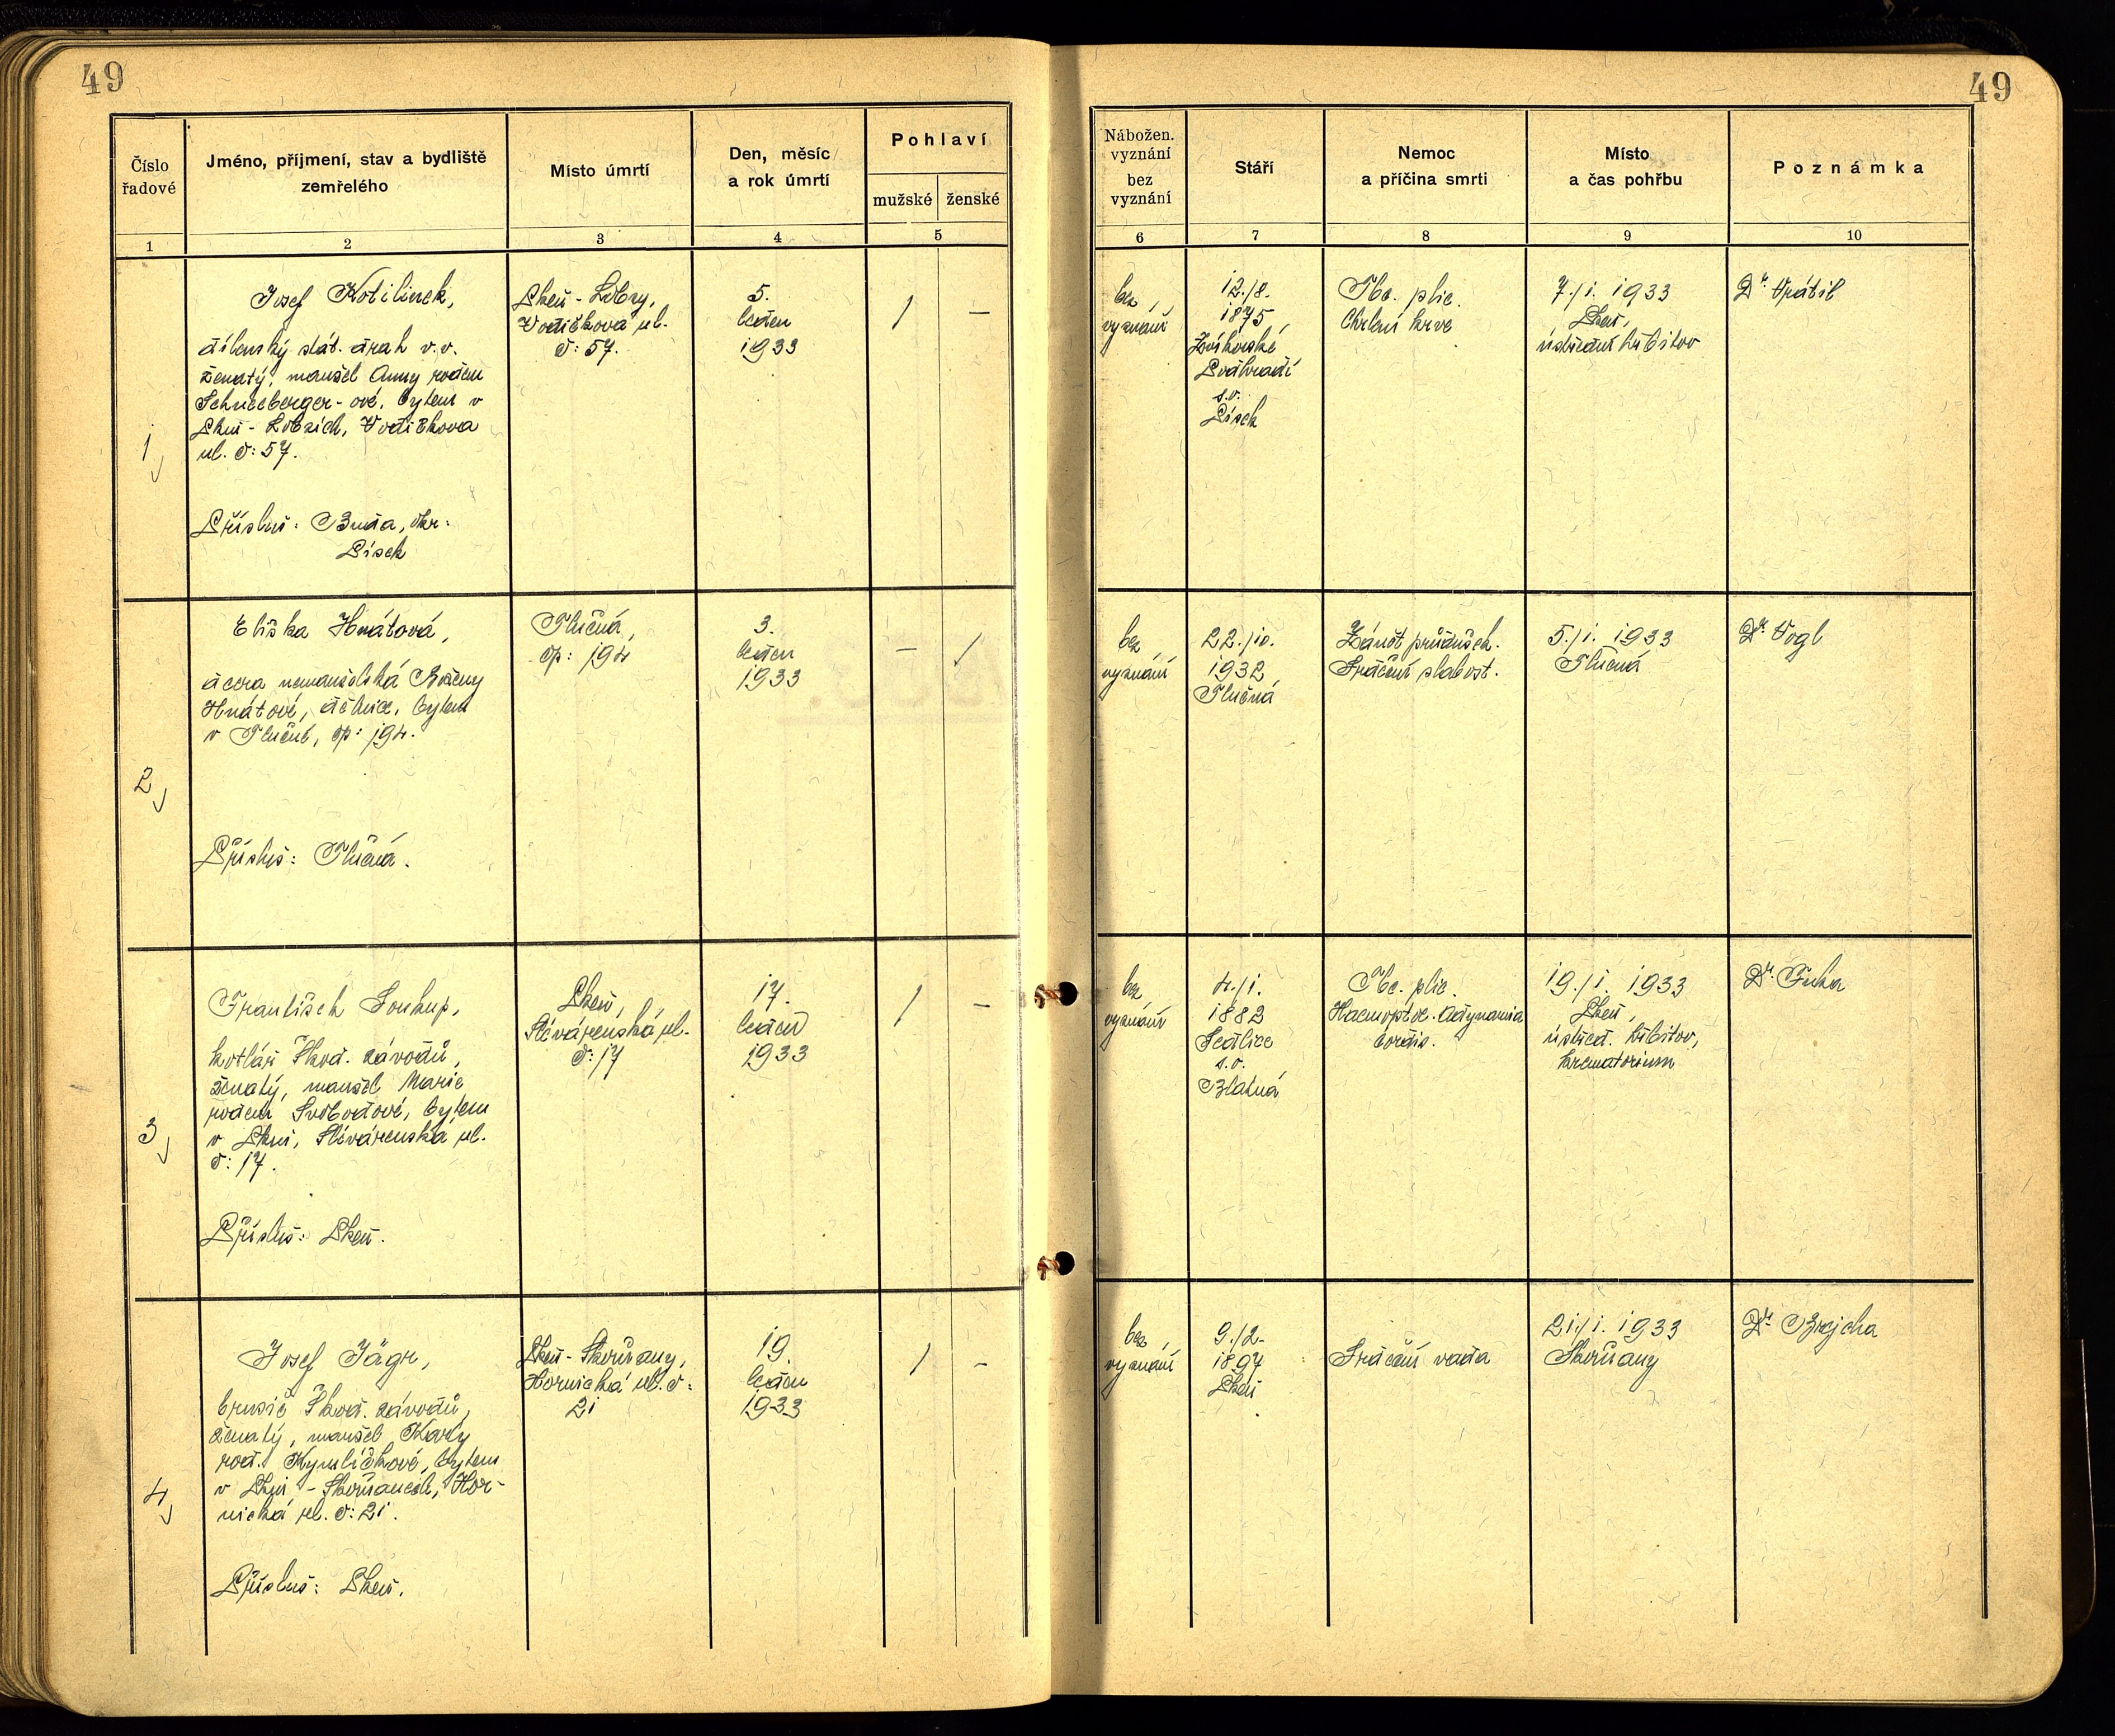 49
49
Číslo řadové
Jméno, příjmení, stav a bydliště
zemřelého
Místo úmrtí
Den, měsíc
a rok úmrtí
Pohlaví
mužské
ženské
Nábožen.
vyznání
bez
vyznání
Stáří
Nemoc
a příčina smrti
Místo
a čas pohřbu
Poznámka
1
2
3
4
5
6
7
8
9
10
1
Josef Kotilinek,
dílenský stát. drah v.v.
ženatý, manžel Anny rozen
Schneeberger-ové, bytem v
Plzni - Lobzích, Vodičkova
ul. č: 57.
Přísluš: Budá, okr:
Písek
Plzeň - Lobzy,
Vodičkova ul.
č: 57.
5.
leden
1933
/
–
bez
vyznání
12./8.
1875
Zvíkovské
Podhradí
s.o.
Písek
Tbc. plic.
Chrlení krve
7./I. 1933
Plzeň,
ústřední hřbitov
Dr. Vrátil
2
Eliška Hnátová,
dcera nemanželská Boženy
Hnátové, dělnice, bytem
v Tlučné, čp: 194.
Přísluš: Tlučná.
Tlučná,
čp: 194
3.
leden
1933
–
/
bez
vyznání
22./10.
1932
Tlučná
Zánět průdušek.
Srdeční slabost.
5./I. 1933
Tlučná
Dr. Vogl
3
František Soukup,
kotlář Škod. závodů,
ženatý, manžel Marie
rozen Svobodové, bytem
v Plzni, Slévárenská ul.
č: 17.
Přísluš: Plzeň.
Plzeň,
Slévárenská ul.
č: 17
17.
leden
1933
/
–
bez
vyznání
4./I.
1882
Sedlice
s.o.
Blatná
Tbc. plic.
Haemoptoe. Adynamia
cordis.
19./I. 1933
Plzeň,
ústřed. hřbitov,
krematorium
Dr. Fuka
4
Josef Jägr,
brusič Škod. závodů,
ženatý, manžel Karly
roz. Kynclíčkové, bytem
v Plzni - Skvrňanech, Hor-
nická ul. č: 21.
Přísluš: Plzeň.
Plzeň - Skvrňany,
Hornická ul. č:
21
19.
leden
1933
/
–
bez
vyznání
9./2.
1897
Plzeň
Srdeční vada
21./I. 1933
Skvrňany
Dr. Brejcha